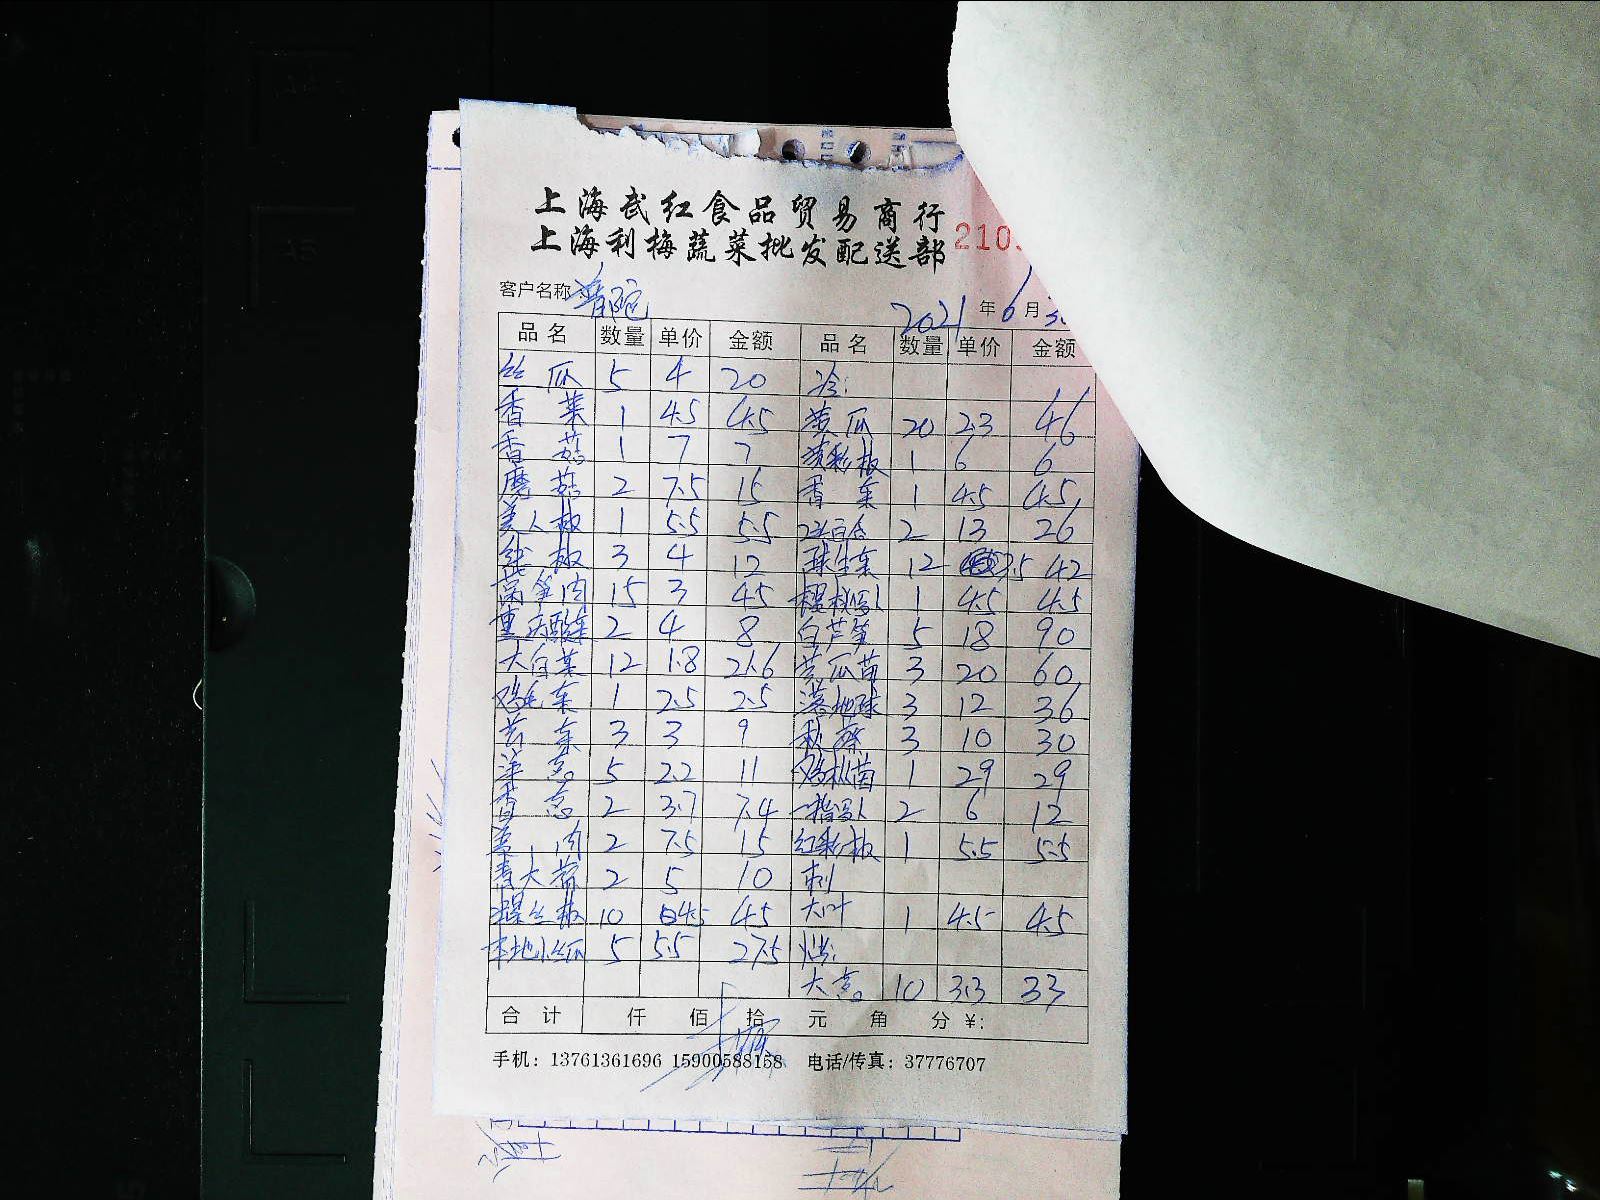 上海武红食品贸易商行
上海利梅蔬菜批发配送部 210
客户名称 普陀 2021 年 6 月
品名 数量 单价 金额 品名 数量 单价 金额
丝瓜 5 4 20 冷:
香菜 1 4.5 4.5 黄瓜 20 2.3 46
香菇 1 7 7 黄彩椒 1 6 6
磨菇 2 7.5 15 香菜 1 4.5 4.5
美人椒 1 5.5 5.5 百合 2 13 26
线椒 3 4 12 球生菜 12 3.5 42
莴笋肉 15 3 45 1 4.5 4.5
重庆酸菜 2 4 8 白芦笋 5 18 90
大白菜 12 1.8 21.6 黄瓜苗 3 20 60
鸡毛菜 1 2.5 2.5 落地球 3 12 36
芹菜 3 3 9 秋葵 3 10 30
洋葱 5 2.2 11 鸡枞菌 1 29 29
香葱 2 3.7 7.4 2 6 12
肉 2 7.5 15 红彩椒 1 5.5 5.5
青大蒜 2 5 10 刺
螺丝椒 10 4.5 45 大叶 1 4.5 4.5
本地小丝瓜 5 5.5 27.5
大葱 10 3.3 33
合计 仟 佰 拾 元 角 分 ¥:
手机: 13761361696 15900588158 电话/传真: 37776707